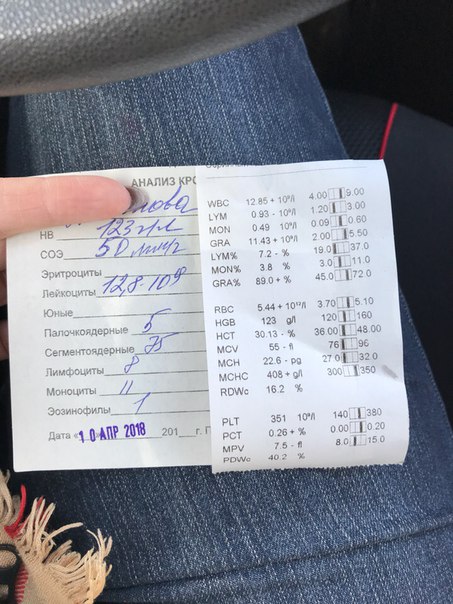 АНАЛИЗ КРО
HB 123 г/л
СОЭ 50 мм/ч
Эритроциты
Лейкоциты 12,8·10⁹
Юные
Палочкоядерные 5
Сегментоядерные 75
Лимфоциты 8
Моноциты 11
Эозинофилы 1
Дата «10 АПР 2018 201 г.
WBC 12.85 + 10⁹/l 4.00 9.00
LYM 0.93 - 10⁹/l 1.20 3.00
MON 0.49 10⁹/l 0.09 0.60
GRA 11.43 + 10⁹/l 2.00 5.50
LYM% 7.2 - % 19.0 37.0
MON% 3.8 % 3.0 11.0
GRA% 89.0 + % 45.0 72.0
RBC 5.44 + 10¹²/l 3.70 5.10
HGB 123 g/l 120 160
HCT 30.13 - % 36.00 48.00
MCV 55 - fl 76 96
MCH 22.6 - pg 27.0 32.0
MCHC 408 + g/l 300 350
RDWc 16.2 %
PLT 351 10⁹/l 140 380
PCT 0.26 + % 0.00 0.20
MPV 7.5 - fl 8.0 15.0
PDWc 40.2 %